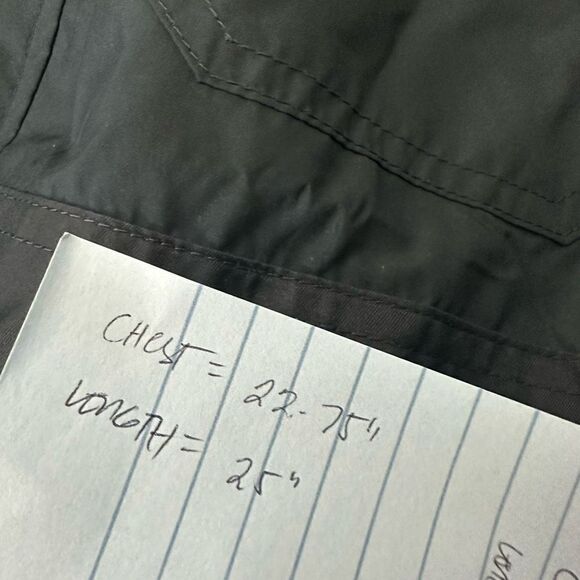 CHEST = 22.75"
LENGTH = 25"